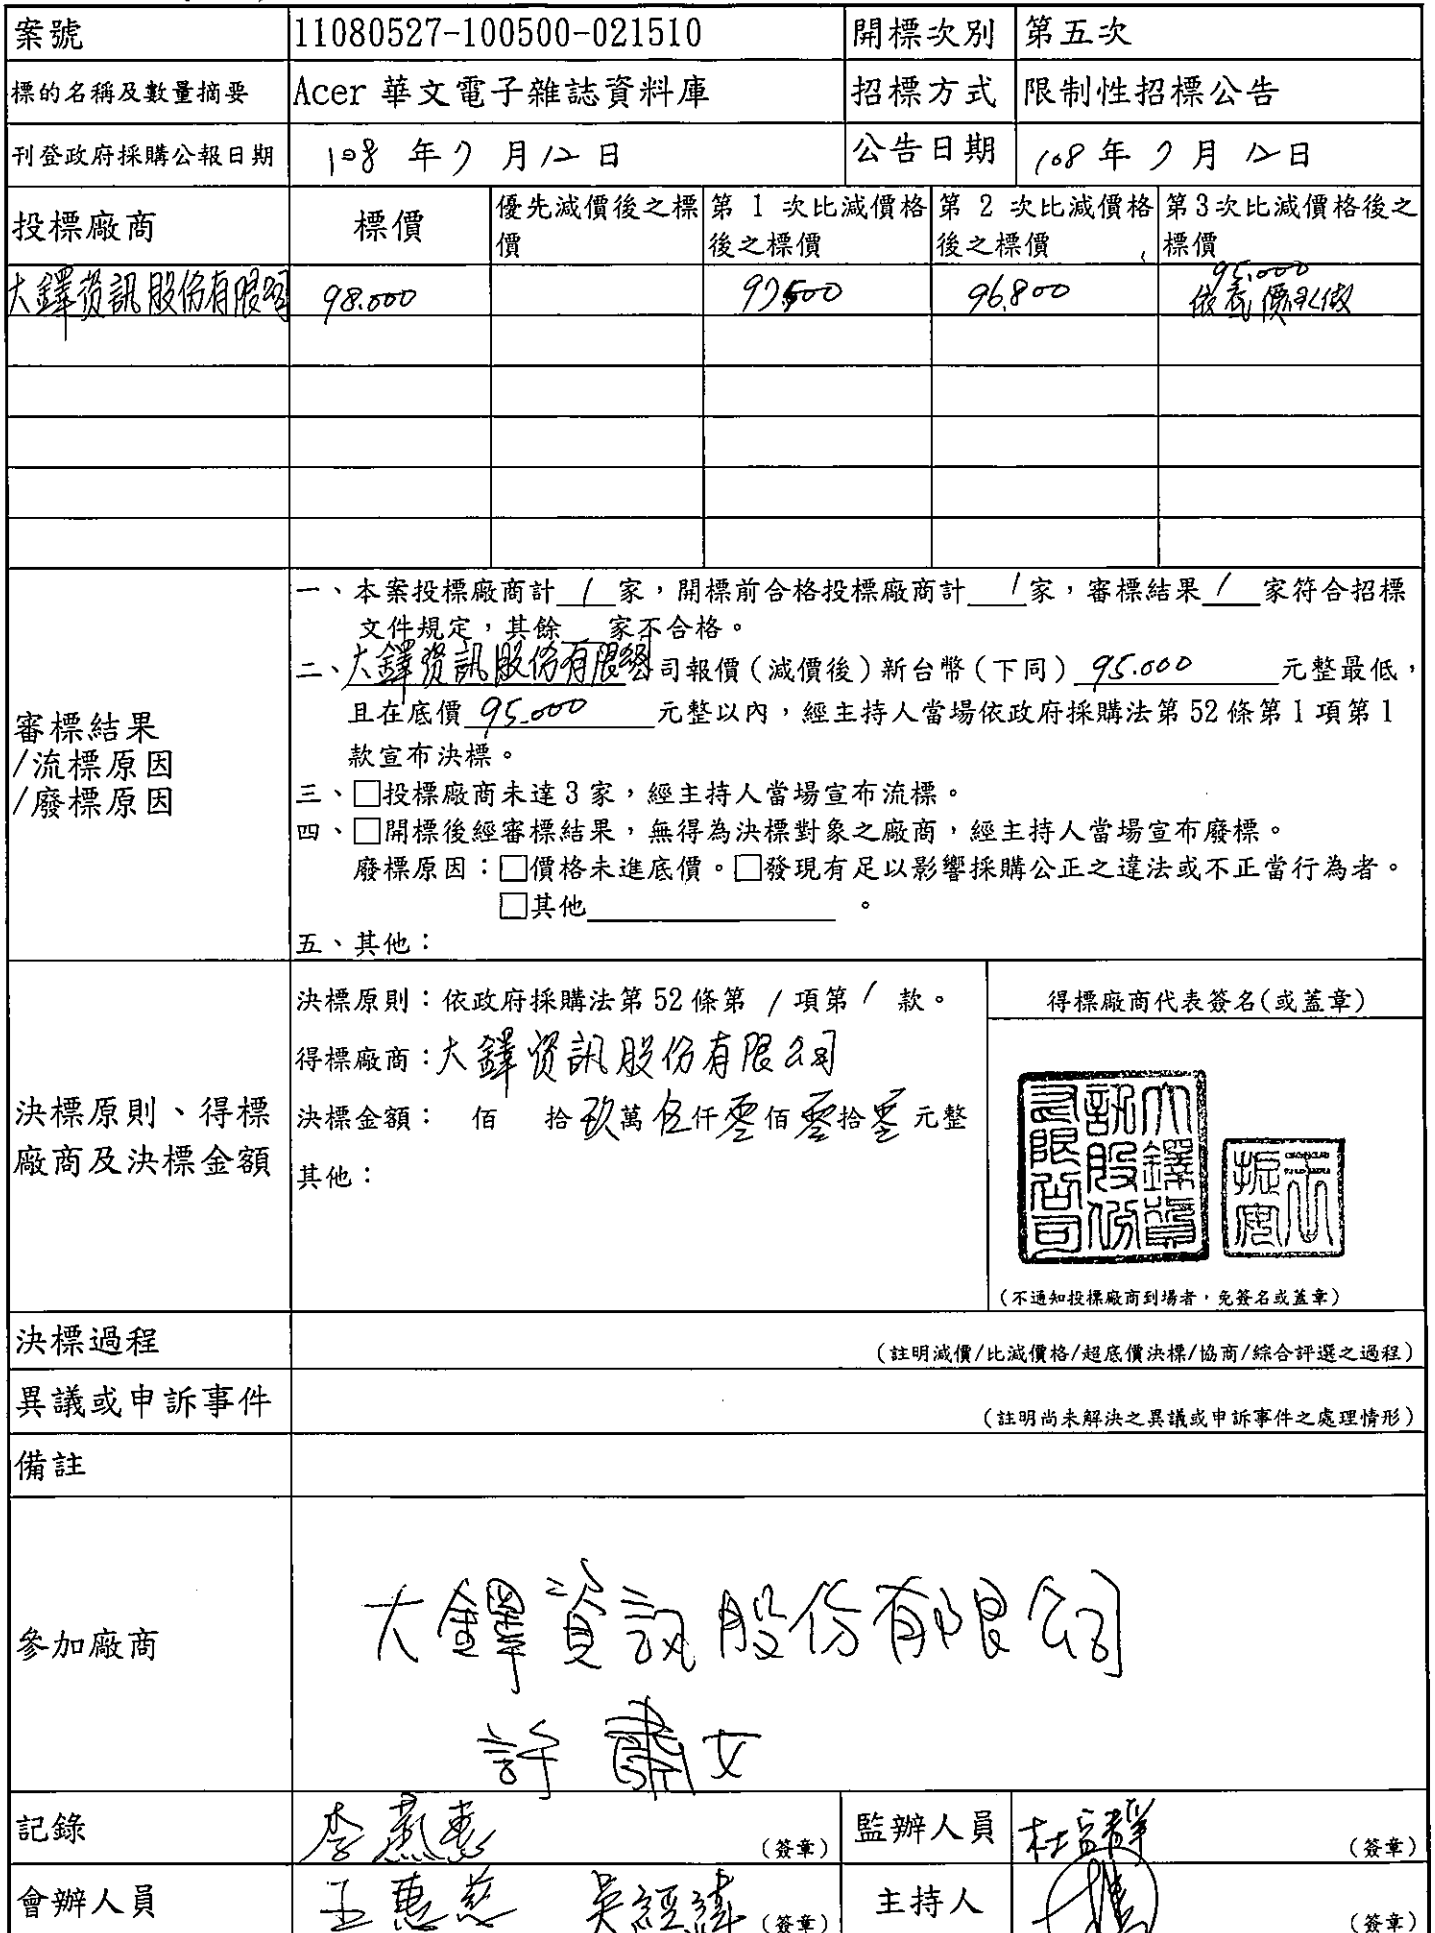 案號 11080527-100500-021510 開標次別 第五次
標的名稱及數量摘要 Acer 華文電子雜誌資料庫 招標方式 限制性招標公告
刊登政府採購公報日期 108 年 7 月 12 日 公告日期 108 年 7 月 12 日
投標廠商 標價 優先減價後之標價 第 1 次比減價格後之標價 第 2 次比減價格後之標價 第3次比減價格後之標價
大鐸資訊股份有限公司 98.000 97,500 96,800 95,000
依底價承做
審標結果
/流標原因
/廢標原因
一、本案投標廠商計 1 家，開標前合格投標廠商計 1 家，審標結果 1 家符合招標
文件規定，其餘 家不合格。
二、大鐸資訊股份有限公司報價（減價後）新台幣（下同） 95.000 元整最低，
且在底價 95.000 元整以內，經主持人當場依政府採購法第 52 條第 1 項第 1
款宣布決標。
三、□投標廠商未達 3 家，經主持人當場宣布流標。
四、□開標後經審標結果，無得為決標對象之廠商，經主持人當場宣布廢標。
廢標原因：□價格未進底價。□發現有足以影響採購公正之違法或不正當行為者。
□其他 。
五、其他：
決標原則、得標
廠商及決標金額
決標原則：依政府採購法第 52 條第 1 項第 1 款。
得標廠商：大鐸資訊股份有限公司
決標金額： 佰 拾 玖萬 伍仟 零佰 零拾 零元整
其他：
得標廠商代表簽名(或蓋章)
大鐸資訊股份有限公司
(不通知投標廠商到場者，免簽名或蓋章)
決標過程 (註明減價/比減價格/超底價決標/協商/綜合評選之過程)
異議或申訴事件 (註明尚未解決之異議或申訴事件之處理情形)
備註
參加廠商
大鐸資訊股份有限公司
許 女
記錄 李燕惠 (簽章) 監辦人員 (簽章)
會辦人員 王惠慈 吳經緯 (簽章) 主持人 (簽章)